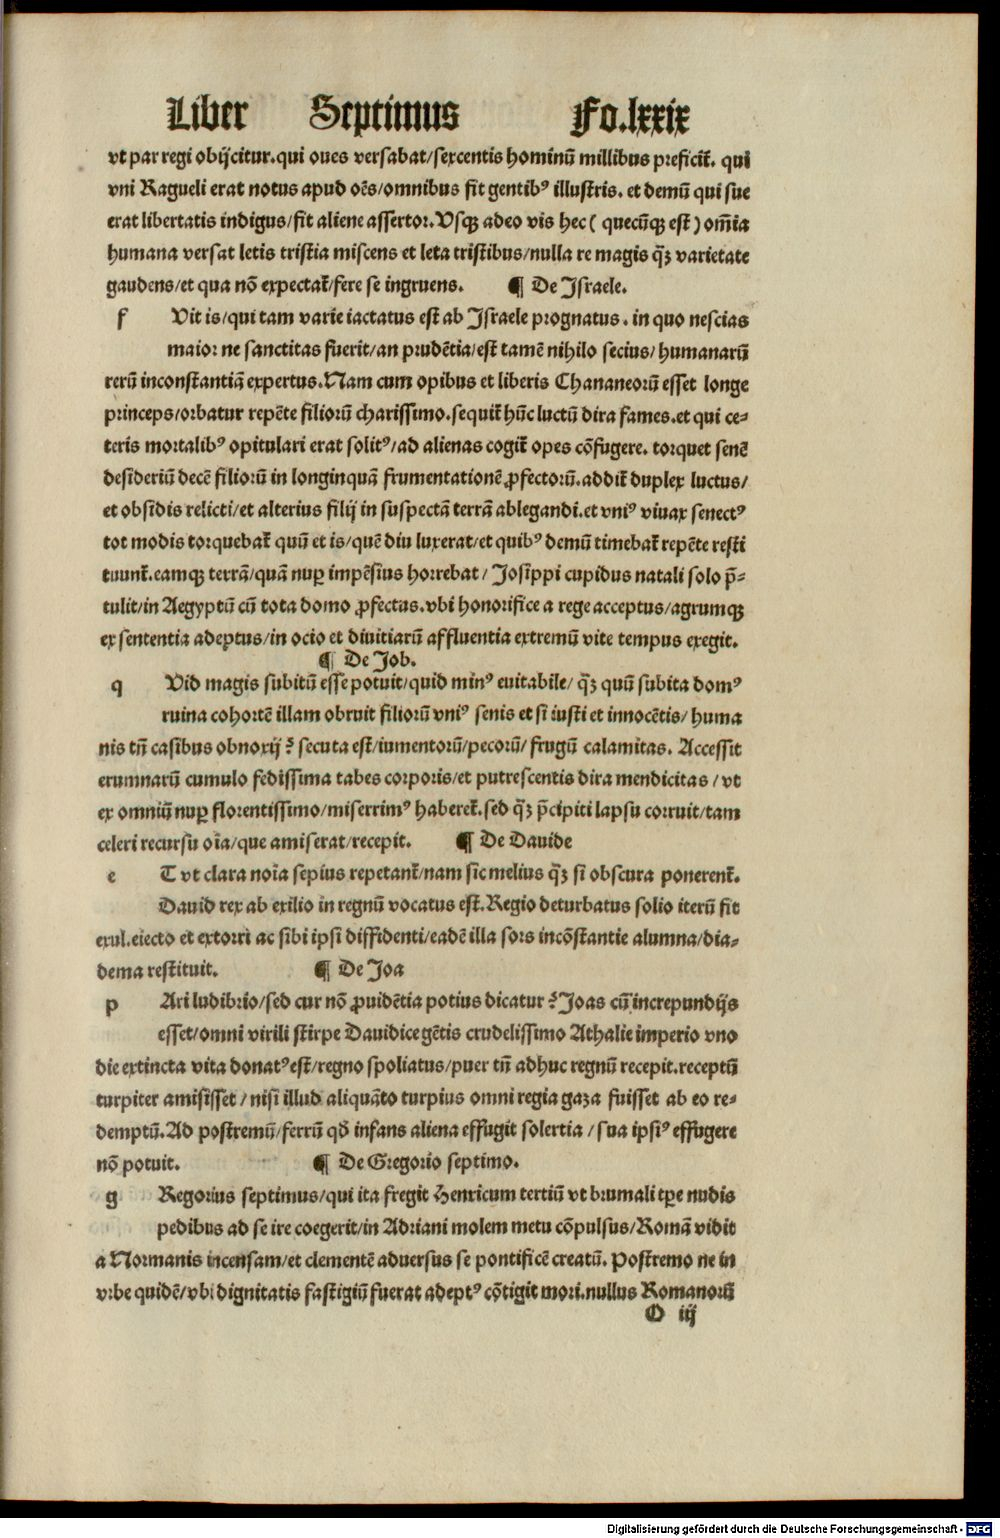 Liber Septimus Fo.lxxix
vt par regi obijcitur.qui oues versabat/sexcentis hominū millibus preficit̄. qui
vni Ragueli erat notus apud oēs/omnibus fit gentibꝰ illustris. et demū qui sue
erat libertatis indigus/fit aliene assertor.Usqꝫ adeo vis hec ( quecūqꝫ est ) om̄ia
humana versat letis tristia miscens et leta tristibus/nulla re magis q̄ꝫ varietate
gaudens/et qua nō expectat̄/fere se ingruens. ¶ De Israele.
f Uit is/qui tam varie iactatus est ab Israele prognatus. in quo nescias
maior ne sanctitas fuerit/an prudētia/est tamē nihilo secius/humanarū
rerū inconstantiā expertus.Nam cum opibus et liberis Chananeorū esset longe
princeps/orbatur repēte filiorū charissimo.sequit̄ hūc luctū dira fames.et qui ce-
teris mortalibꝰ opitulari erat solitꝰ/ad alienas cogit̄ opes cōfugere. torquet senē
desideriū decē filiorū in longinquā frumentationē ꝓfectorū.addit̄ duplex luctus/
et obsidis relicti/et alterius filij in suspectā terrā ablegandi.et vniꝰ viuax senectꝰ
tot modis torquebat̄ quū et is/quē diu luxerat/et quibꝰ demū timebat̄ repēte resti
tuunt̄.eamqꝫ terrā/quā nuꝑ impēsius horrebat/ Josippi cupidus natali solo p̄-
tulit/in Aegyptū cū tota domo ꝓfectus.vbi honorifice a rege acceptus/agrumqꝫ
ex sententia adeptus/in ocio et diuitiarū affluentia extremū vite tempus exegit.
¶ De Job.
q Uid magis subitū esse potuit/quid minꝰ euitabile/ q̄ꝫ quū subita domꝰ
ruina cohortē illam obruit filiorū vniꝰ senis et si iusti et innocētis/huma
nis tn̄ casibus obnoxij ? secuta est/iumentorū/pecorū/ frugū calamitas. Accessit
erumnarū cumulo fedissima tabes corporis/et putrescentis dira mendicitas / vt
ex omniū nuꝑ florentissimo/miserrimꝰ haberet̄.sed q̄ꝫ p̄cipiti lapsu corruit/tam
celeri recursu oīa/que amiserat/recepit. ¶ De Dauide
e T vt clara noīa sepius repetant̄/nam sic melius q̄ꝫ si obscura ponerent̄.
Dauid rex ab exilio in regnū vocatus est.Regio deturbatus solio iterū fit
exul.eiecto et extorri ac sibi ipsi diffidenti/eadē illa sors incōstantie alumna/dia-
dema restituit. ¶ De Joa
p Ari ludibrio/sed cur nō ꝓuidētia potius dicatur ? Joas cū increpundijs
esset/omni virili stirpe Dauidice gētis crudelissimo Athalie imperio vno
die extincta vita donatꝰ est/regno spoliatus/puer tn̄ adhuc regnū recepit.receptū
turpiter amisisset / nisi illud aliquāto turpius omni regia gaza fuisset ab eo re-
demptū.Ad postremū/ferrū qđ infans aliena effugit solertia / sua ipsiꝰ effugere
nō potuit. ¶ De Gregorio septimo.
g Regorius septimus/qui ita fregit Henricum tertiū vt brumali tꝑe nudis
pedibus ad se ire coegerit/in Adriani molem metu cōpulsus/Romā vidit
a Normanis incensam/et clementē aduersus se pontificē creatū. Postremo ne in
vrbe quidē/vbi dignitatis fastigiū fuerat adeptꝰ cōtigit mori.nullus Romanorū
O iij
Digitalisierung gefördert durch die Deutsche Forschungsgemeinschaft - DFG